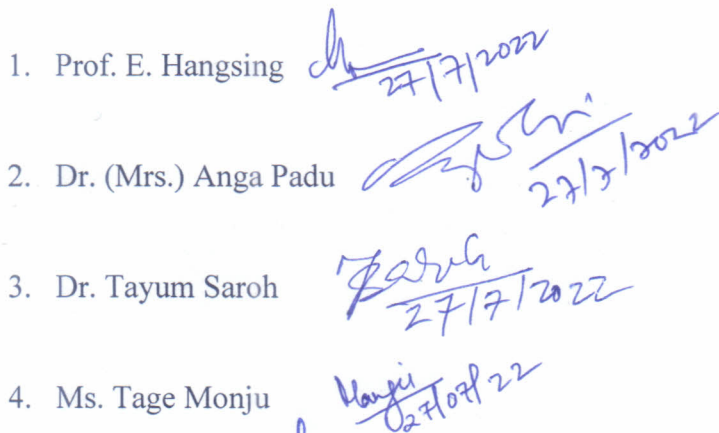 1. Prof. E. Hangsing 27/7/2022
2. Dr. (Mrs.) Anga Padu 27/7/2022
3. Dr. Tayum Saroh Saroh 27/7/2022
4. Ms. Tage Monju 27/07/22